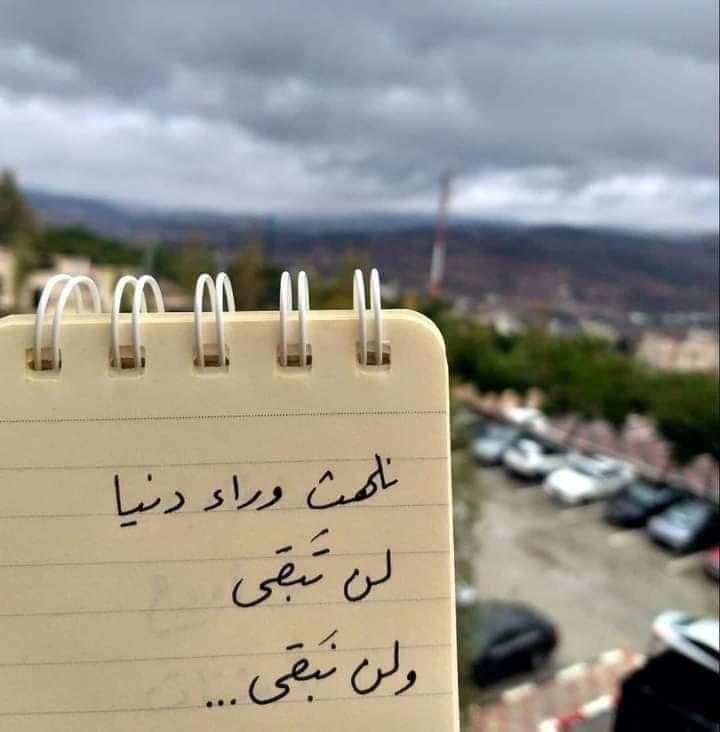 نلهث وراء دنيا
لن تَبقى
ولن نَبقى...